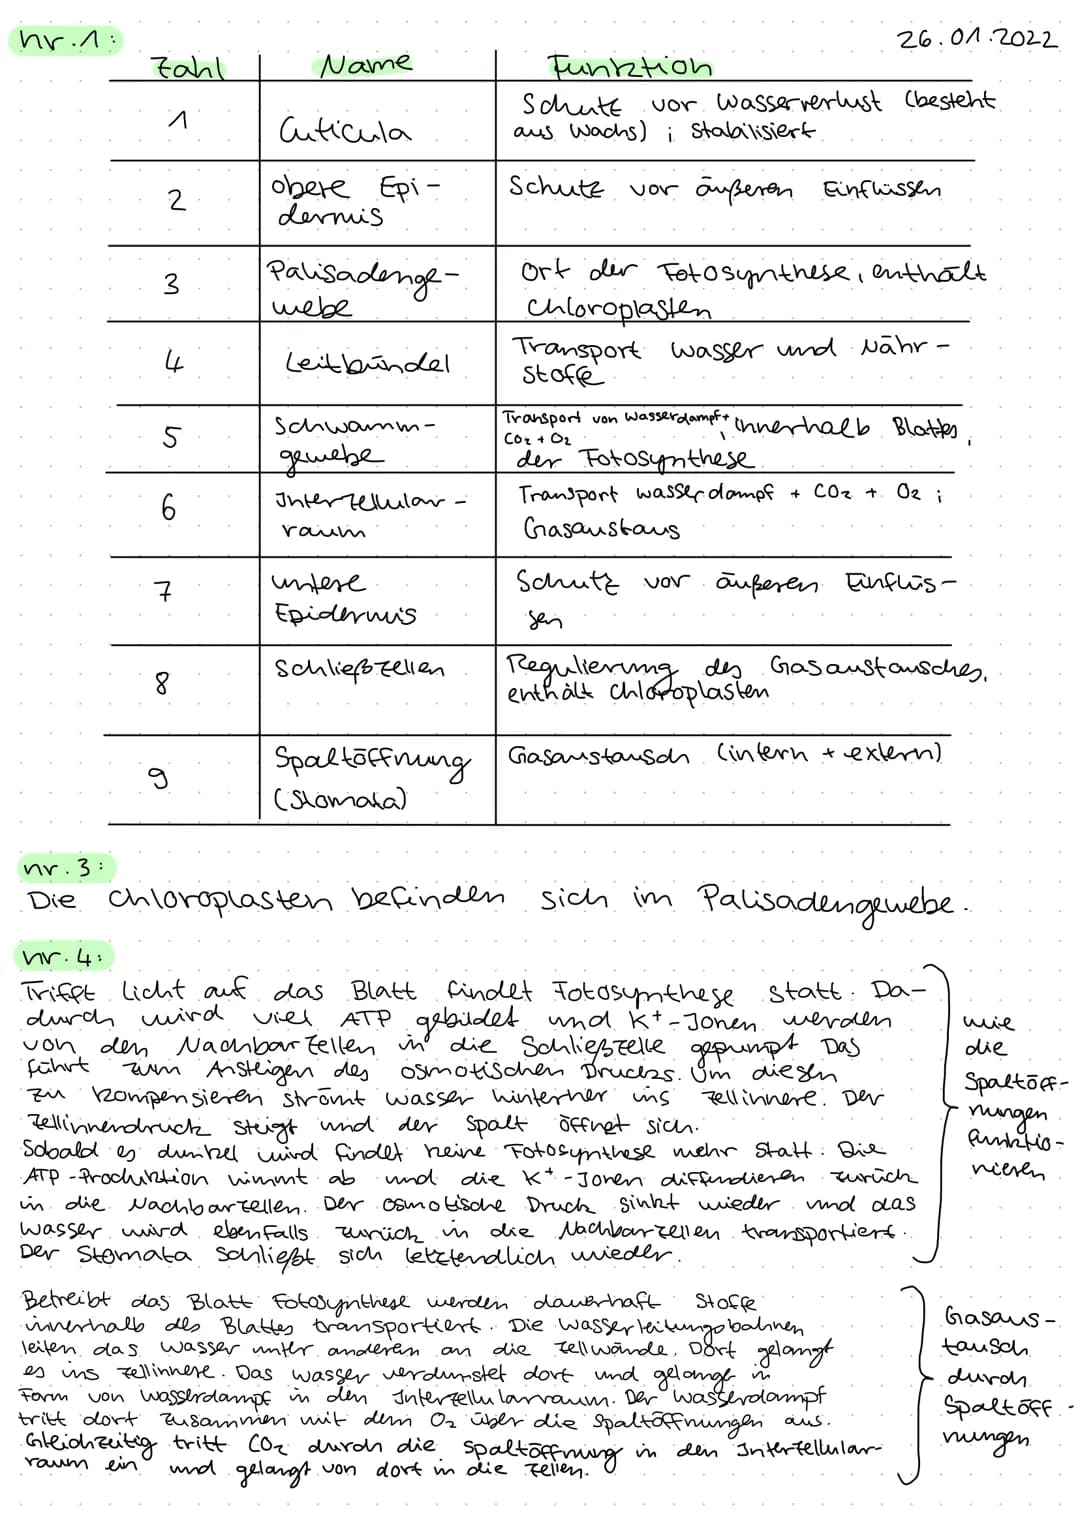 nr.1:
26.01.2022
Zahl Name Funktion
1 Cuticula Schutz vor Wasserverlust (besteht
aus Wachs) ; stabilisiert
2 obere Epi-
dermis
Schutz vor äußeren Einflüssen
3 Palisadenge-
webe
Ort der Fotosynthese, enthält
Chloroplasten
4 Leitbündel Transport Wasser und Nähr-
stoffe
5 Schwamm-
gewebe
Transport von Wasserdampf+
CO2 + O2 innerhalb Blattes,
der Fotosynthese
6 Interzellular-
raum
Transport wasserdampf + CO2 + O2 ;
Gasaustaus
7 untere
Epidermis
Schutz vor äußeren Einflüs-
sen
8 Schließzellen Regulierung des Gasaustausches,
enthält Chloroplasten
9 Spaltöffnung
(Stomata)
Gasaustausch (intern + extern)
nr. 3:
Die Chloroplasten befinden sich im Palisadengewebe.
nr. 4:
Trifft Licht auf das Blatt findet Fotosynthese statt. Da-
durch wird viel ATP gebildet und K+-Jonen werden
von den Nachbarzellen in die Schließzelle gepumpt Das
führt zum Ansteigen des osmotischen Druckes. Um diesen
zu kompensieren strömt wasser hinterher ins Zellinnere. Der
Zellinnendruck steigt und der Spalt öffnet sich.
Sobald es dunkel wird findet keine Fotosynthese mehr statt. Die
ATP-Produktion nimmt ab und die K+-Jonen diffundieren zurück
in die Nachbarzellen. Der osmotische Druck sinkt wieder und das
wasser wird ebenfalls zurück in die Nachbarzellen transportiert.
Der Stomata schließt sich letztendlich wieder.
wie
die
Spaltöff-
nungen
funktio-
nieren
Betreibt das Blatt Fotosynthese werden dauerhaft Stoffe
innerhalb des Blattes transportiert. Die wasserleitungsbahnen
leiten das wasser unter anderen an die Zellwände. Dort gelangt
es ins Zellinnere. Das wasser verdunstet dort und gelangt in
Form von wasserdampf in den Interzellularraum. Der wasserdampf
tritt dort zusammen mit dem O2 über die Spaltöffnungen aus.
Gleichzeitig tritt CO2 durch die Spaltöffnung in den Interzellular-
raum ein und gelangt von dort in die Zellen.
Gasaus-
tausch
durch
Spaltöff-
nungen